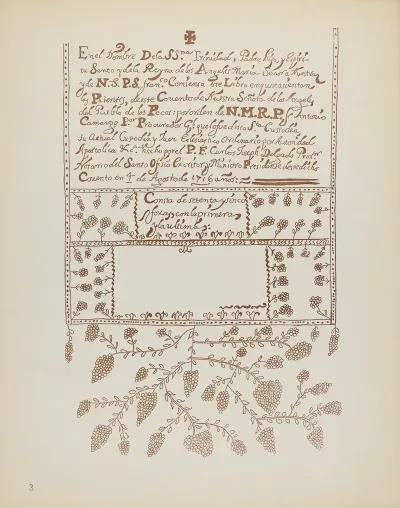 En el Nombre De la SS.ma Trinidad, Padre Hijo, y Espiri-
tu Santo y de la Reyna de los Angeles Maria Señora Nuestra
y de N. S. P. S. Fran.co Comiensa este Libro
los de este Conuento de Nuestra Señora de los Angeles
del Pueblo de los Pecos: por orden de N. M. R. P. Fr. Antonio
Camargo Por Procurador de esta S.ta Custodia
su Actual Custodio y Juez Eclesiastico Ordinario por Autoridad
Apostolica &.a Hecho por el P. F. Carlos Joseph Delgado
Notario del Santo Ofisio Cantor y Ministro Presidente de este dicho
Conuento en 4 de Agosto de 1716 años
Consta de setenta y sinco
foxas con la primera
y la ultima
3